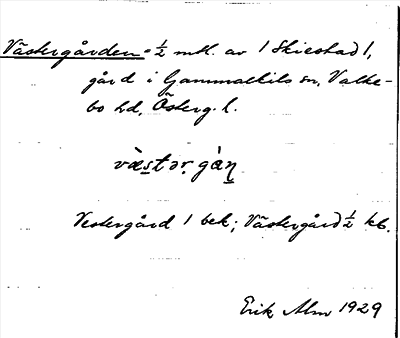 Västergården = 1/2 mtl. av 1 Skiestad 1,
gård i Gammalkils sn, Valke-
bo hd, Österg. l.
væ̀stər gàṇ
Vestergård 1 bek; Västergård 1/2 kb.
Erik Alm 1929